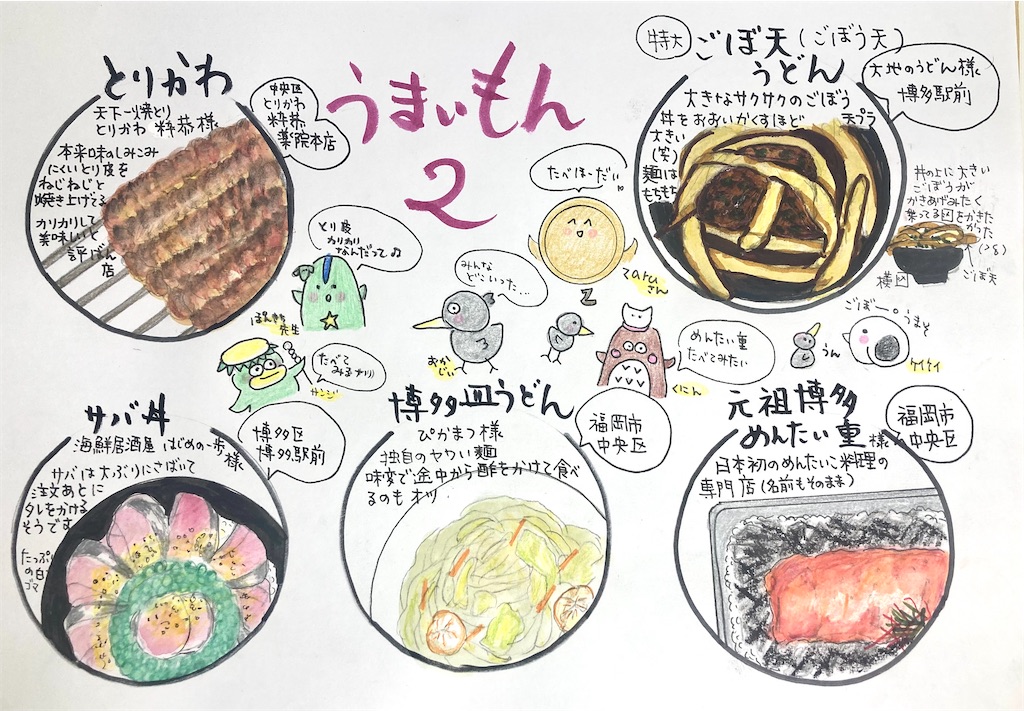 うまいもん
2
とりかわ
天下一焼とり
とりかわ 粋恭様
中央区
とりかわ
粋恭
薬院本店
本来味のしみこみ
にくいとり皮を
ねじねじと
焼き上げてる
カリカリして
美味しいと
評ばん
店
特大
ごぼ天(ごぼう天)
うどん
大地のうどん様
博多駅前
大きなサクサクのごぼう
天プラ
丼をおおいかくすほど
大きい
(笑)
麺は
もちもち
丼の上に大きい
ごぼうが
かきあげみたく
乗ってる図をかきた
かった
横図
ごぼ天
たべほーだい
taruさん
とり皮
カリカリ
なんだって♫
ぽんきち
先生
みんな
どこいった…
おかじぃ
たべて
みるカリ
サンジ
めんたい重
たべてみたい
くにん
ごぼー。うまそ
うん
ケイケイ
サバ丼
海鮮居酒屋 はじめの一歩様
博多区
博多駅前
サバは大ぶりにさばいて
注文あとに
タレをかける
そうです
たっぷり
の白
ゴマ
博多皿うどん
ぴかまつ様
福岡市
中央区
独自のヤワい麺
味変で途中から酢をかけて食べ
るのもオツ.
元祖博多
めんたい重様
福岡市
中央区
日本初のめんたいこ料理の
専門店(名前もそのまま)